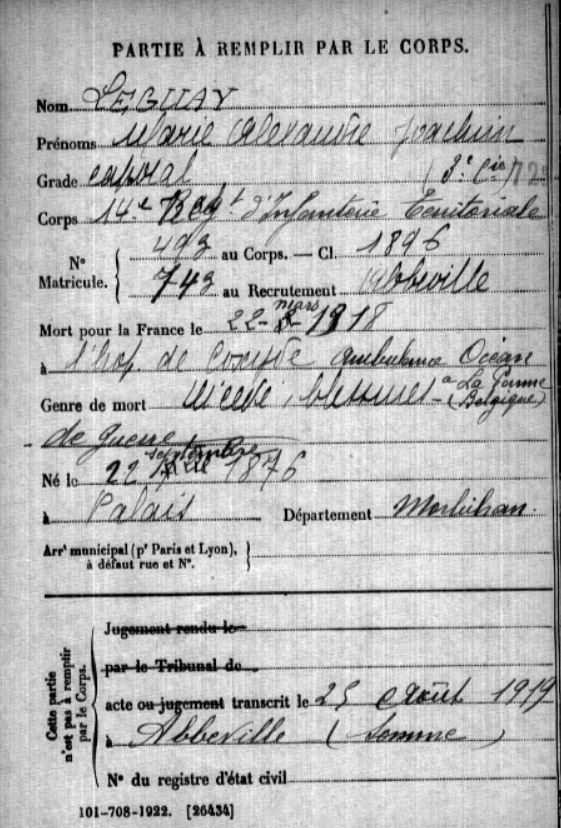 PARTIE À REMPLIR PAR LE CORPS.
Nom LEGUAY
Prénoms Marie Alexandre Joachim
Grade caporal (3e Cie
Corps 14e Regt d'Infanterie Territoriale
N° Matricule. { 493 au Corps. — Cl. 1896
743 au Recrutement Abbeville
Mort pour la France le 22-mars 1918
à l'hop. de ambulance Océan
à La Panne
Genre de mort blessures (Belgique)
de guerre
Né le 22 septembre 1876
à Palais Département Morbihan.
Arrt municipal (pr Paris et Lyon), }
à défaut rue et N°.
Cette partie n'est pas à remplir par le Corps. {
Jugement rendu le
par le Tribunal de
acte ou jugement transcrit le 25 Août 1919
à Abbeville (Somme)
N° du registre d'état civil
101-708-1922. [26434]